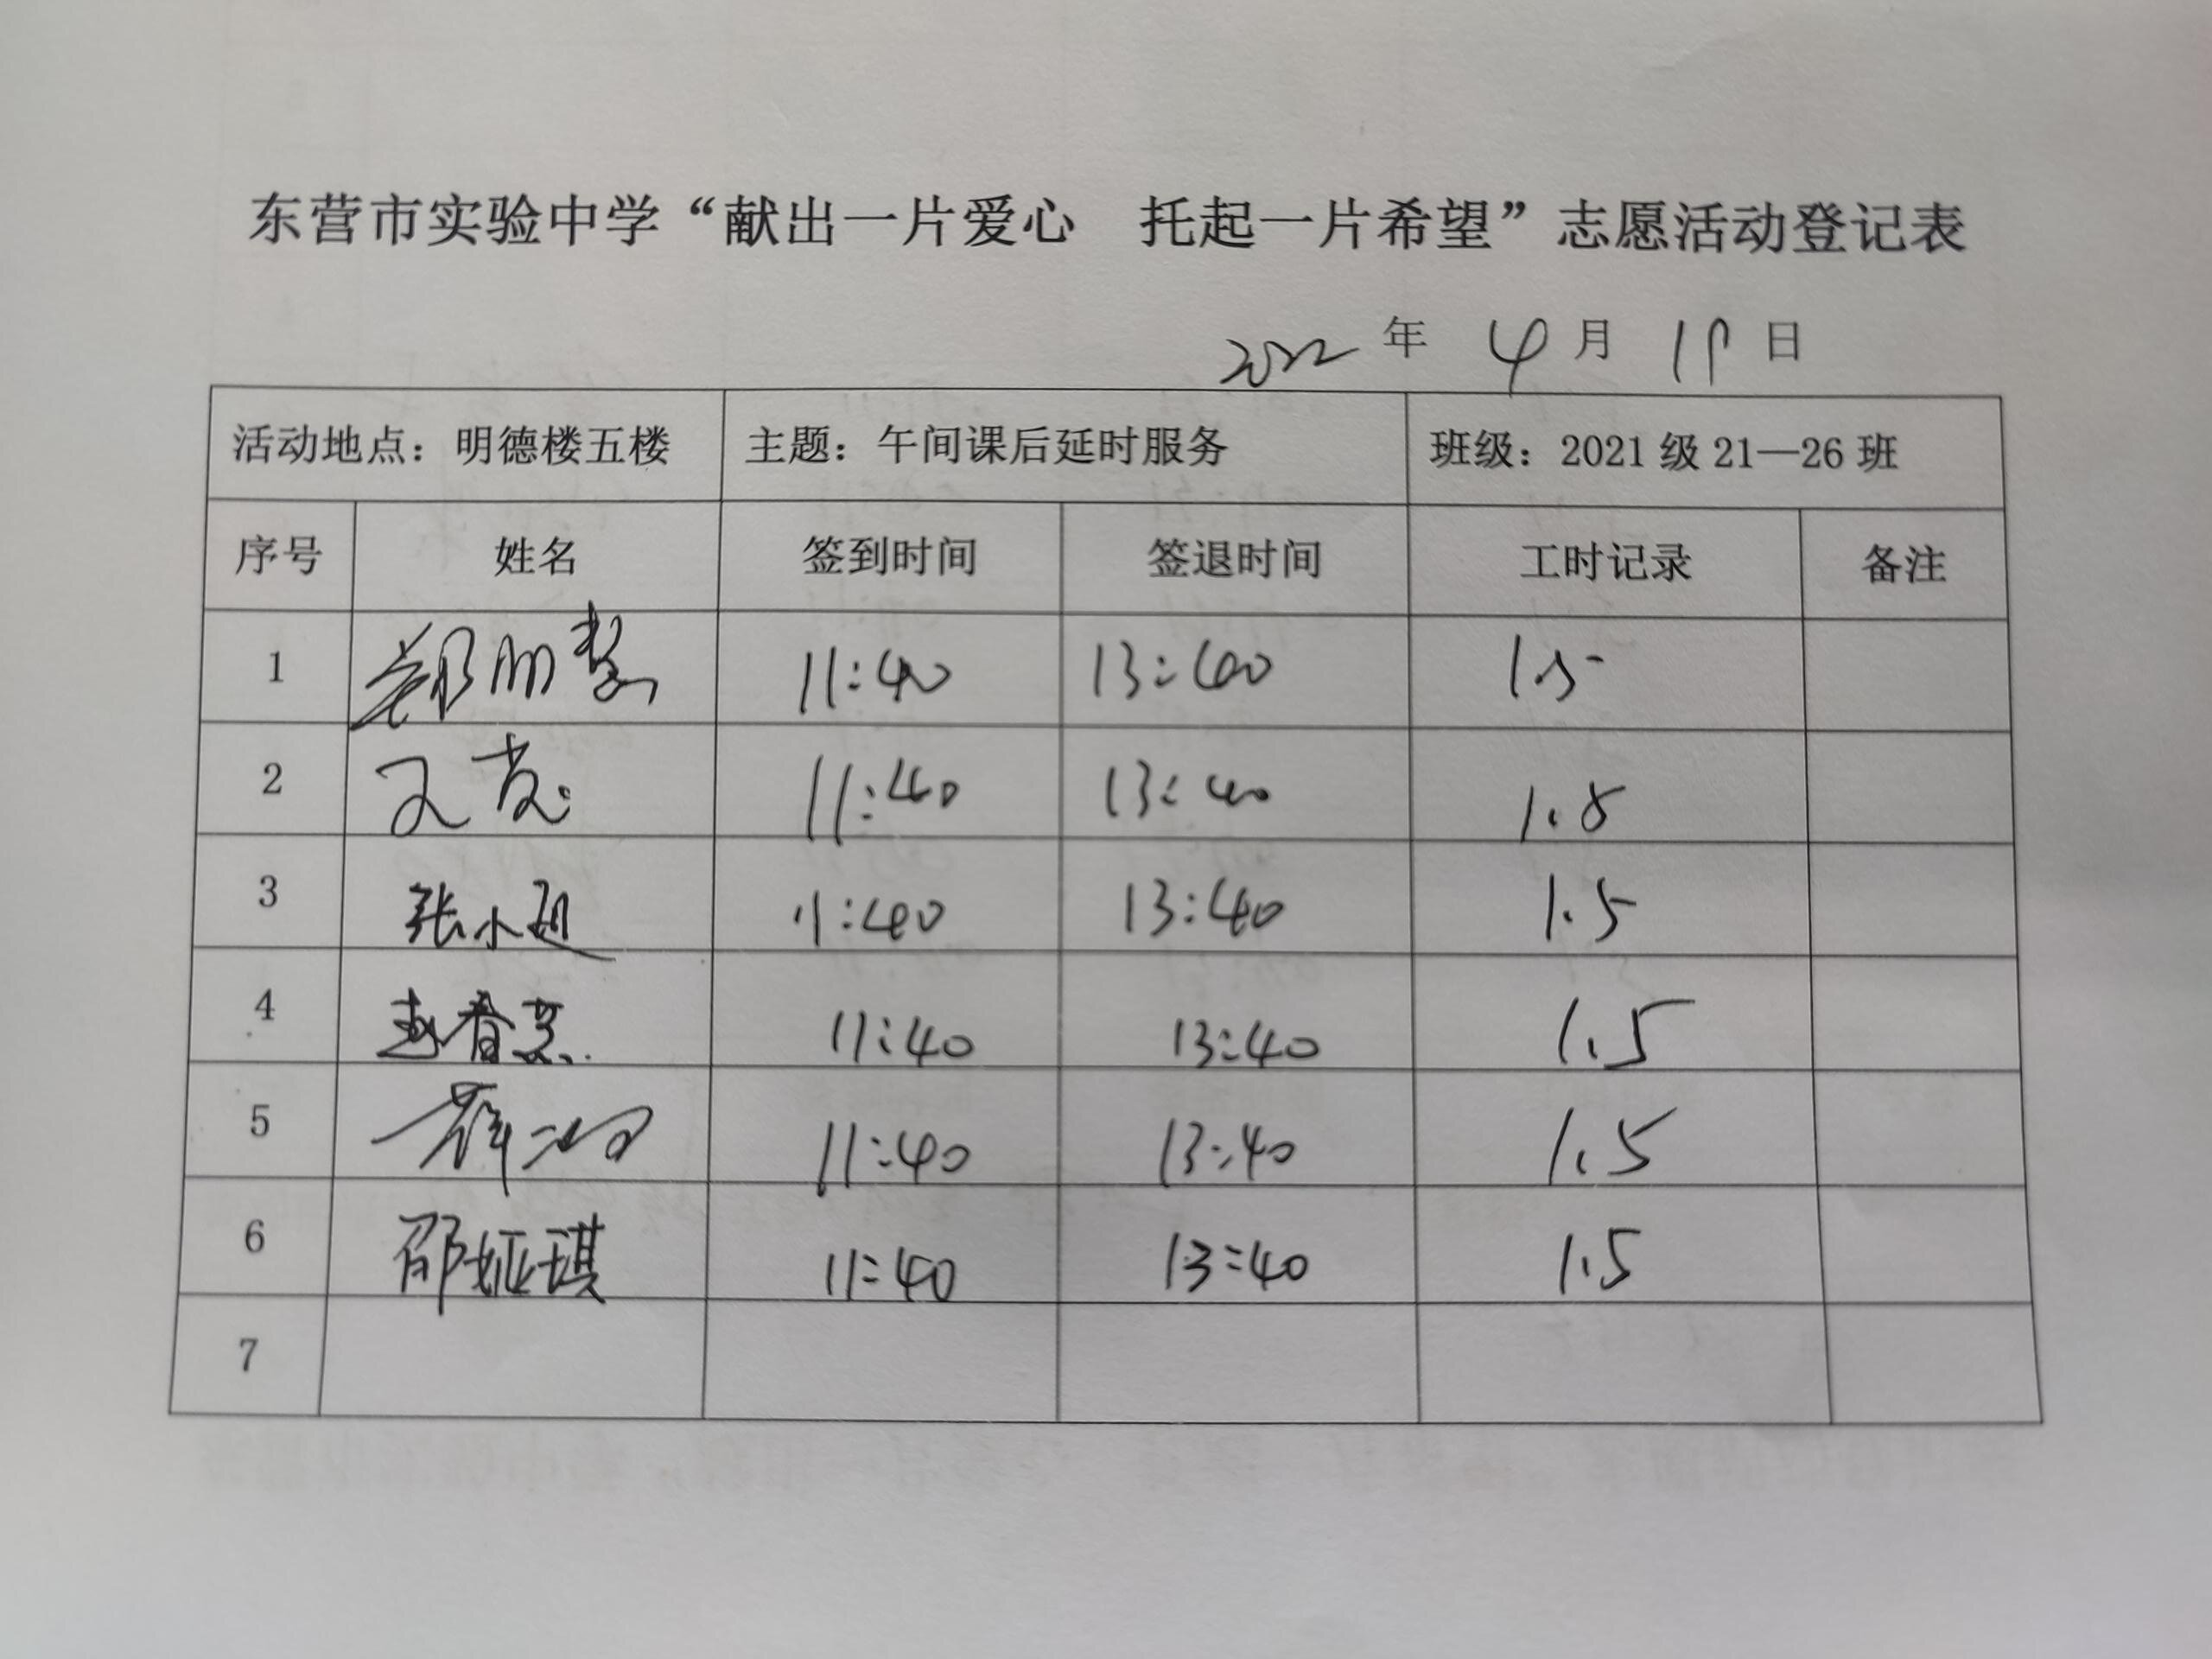 东营市实验中学“献出一片爱心 托起一片希望”志愿活动登记表
2022 年 4 月 19 日
活动地点：明德楼五楼 主题：午间课后延时服务 班级：2021 级 21—26 班
序号 姓名 签到时间 签退时间 工时记录 备注
1 11:40 13:40 1.5
2 11:40 13:40 1.5
3 张小 11:40 13:40 1.5
4 赵春 11:40 13:40 1.5
5 薛 11:40 13:40 1.5
6 邵娅琪 11:40 13:40 1.5
7